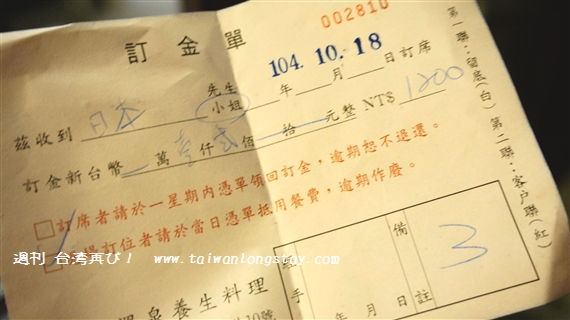 002810
訂金單
104.10.18
先生
小姐
年 月 日訂席
茲收到 日本
元整 NT$ 1200
訂金新台幣 萬壹仟貳佰 拾
□訂席者請於一星期內憑單領回訂金,逾期恕不退還。
場訂位者請於當日憑單抵用餐費,逾期作廢。
第一聯:留底(白) 第二聯:客戶聯(紅)
泉養生料理
手
年 月 日
備註
3
10號
週刊 台湾再び! www.taiwanlongstay.com